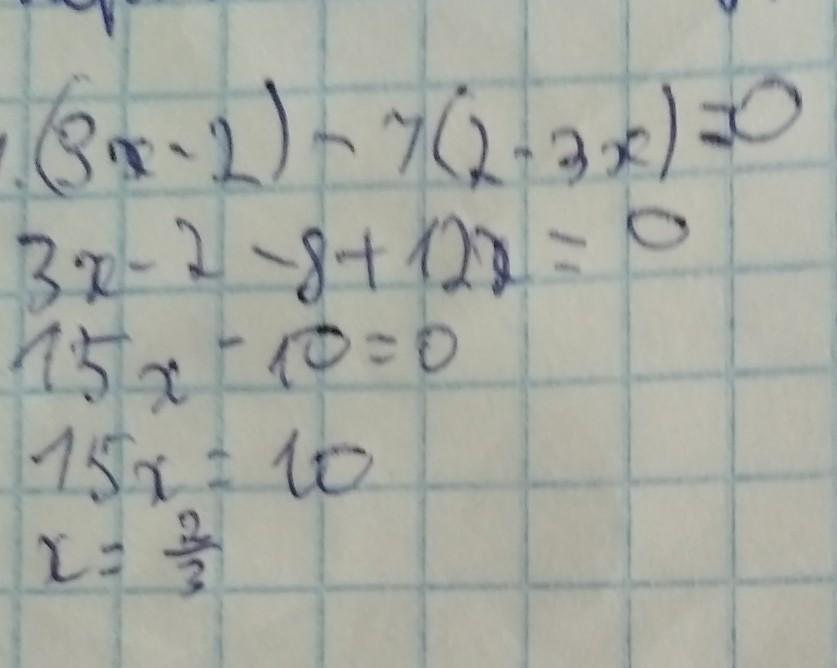 (3x - 2) - 7(2 - 3x) = 0
3x - 2 - 8 + 12x = 0
15x - 10 = 0
15x = 10
x = 2/3